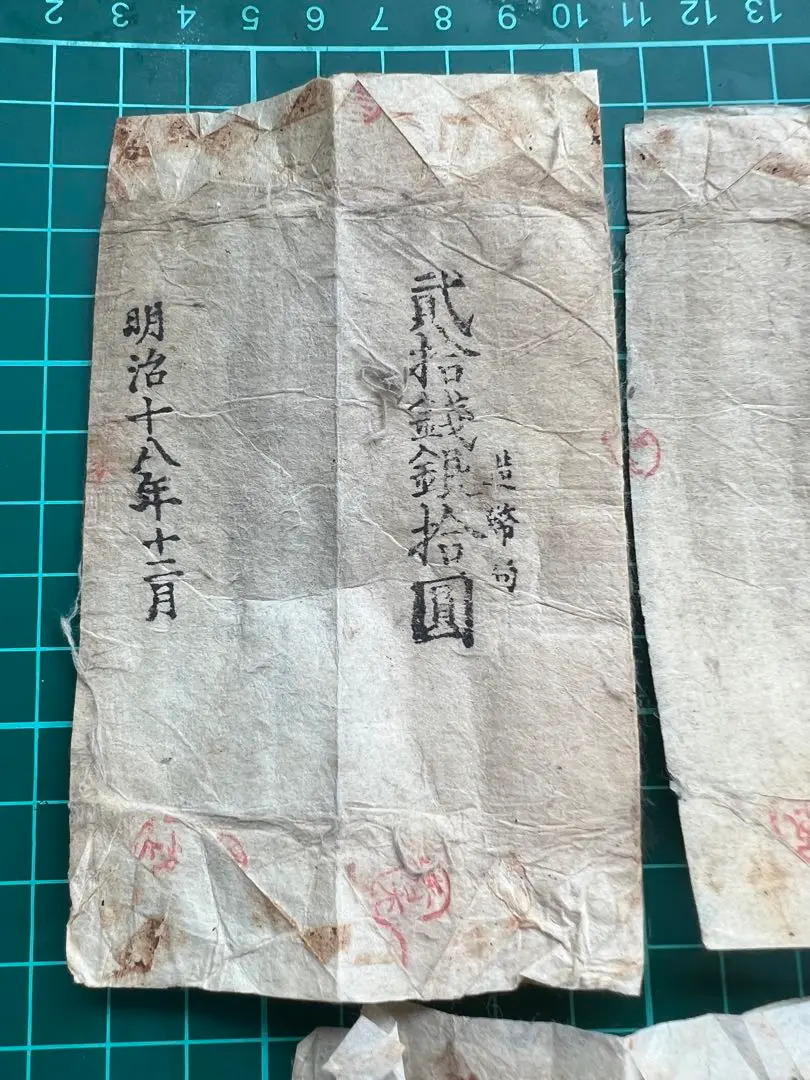 2 3 4 5 6 7 8 9 10 11 12 13
造幣局
貳拾錢銀拾圓
明治十八年十二月